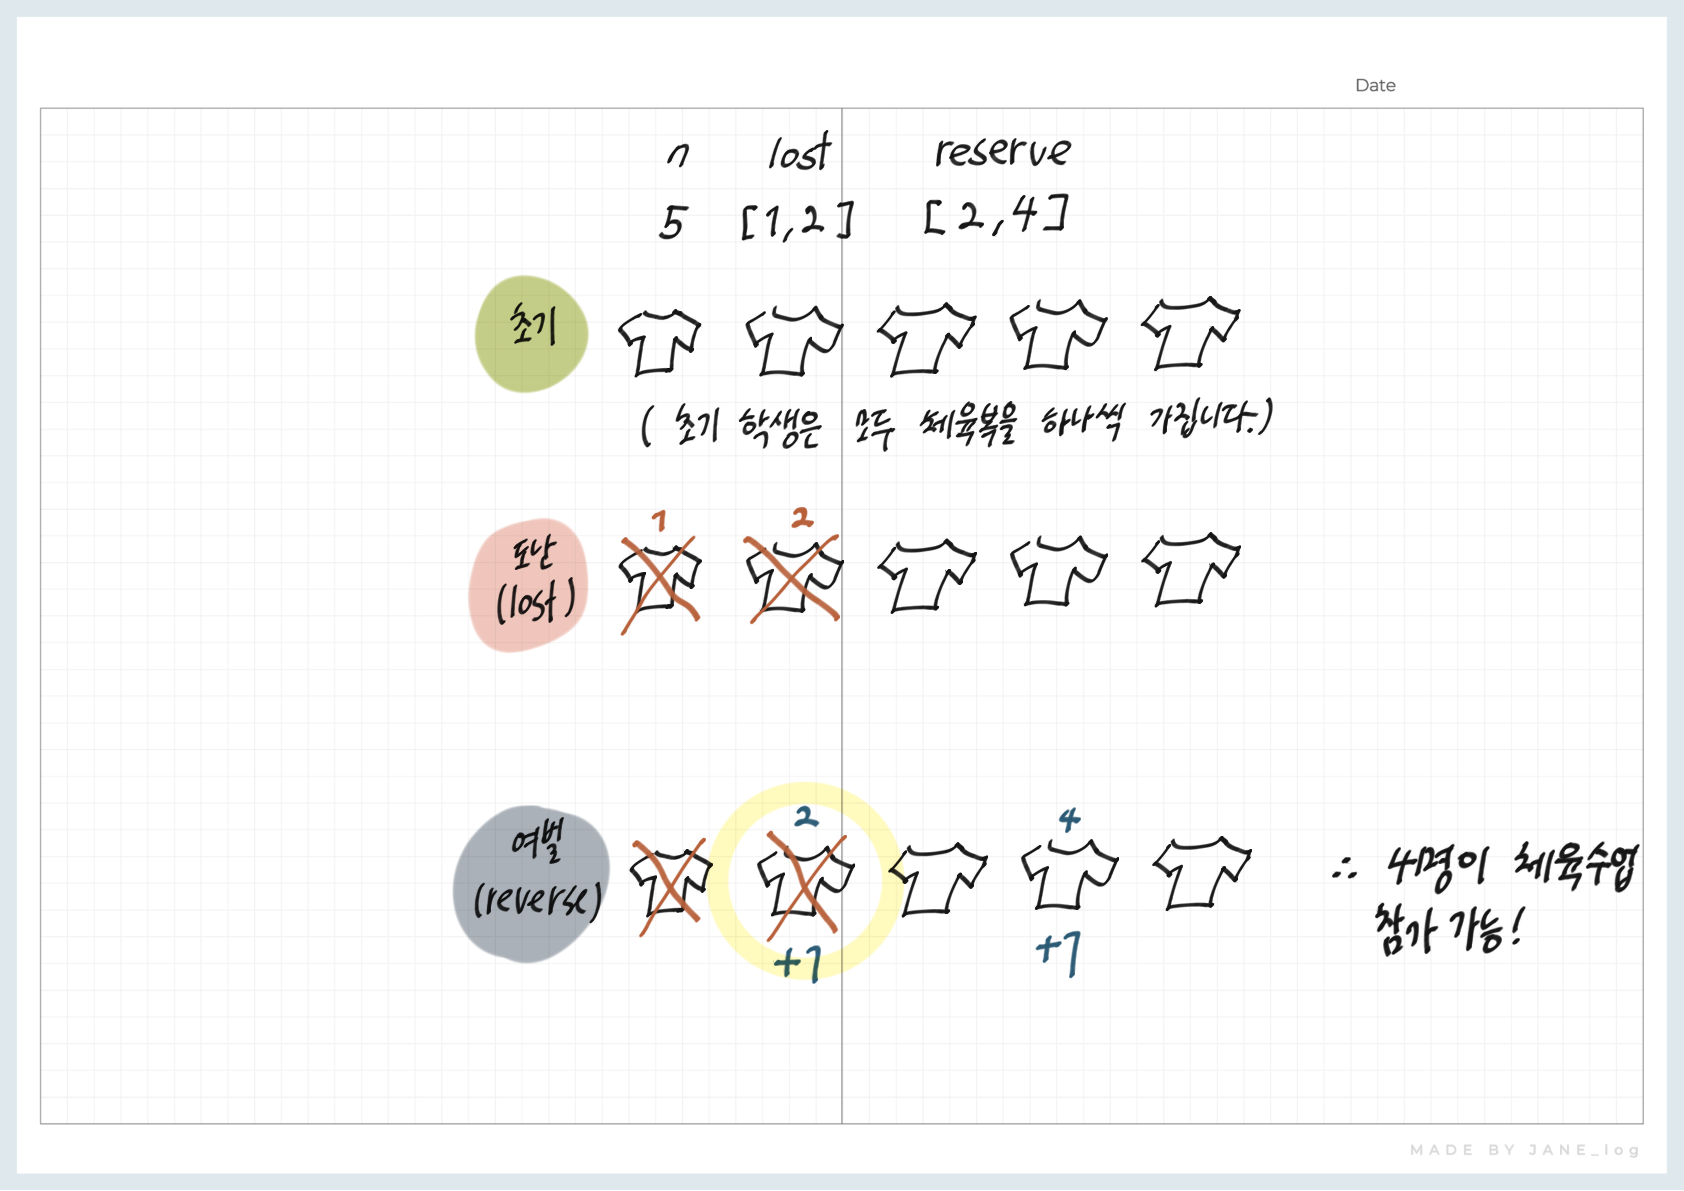 Date
n lost reserve
5 [1,2] [2,4]
초기
( 초기 학생은 모두 체육복을 하나씩 가집니다.)
1 2
도난
(lost)
2 4
여벌
(reverse)
+1 +1
∴ 4명이 체육수업
참가 가능!
MADE BY JANE_log